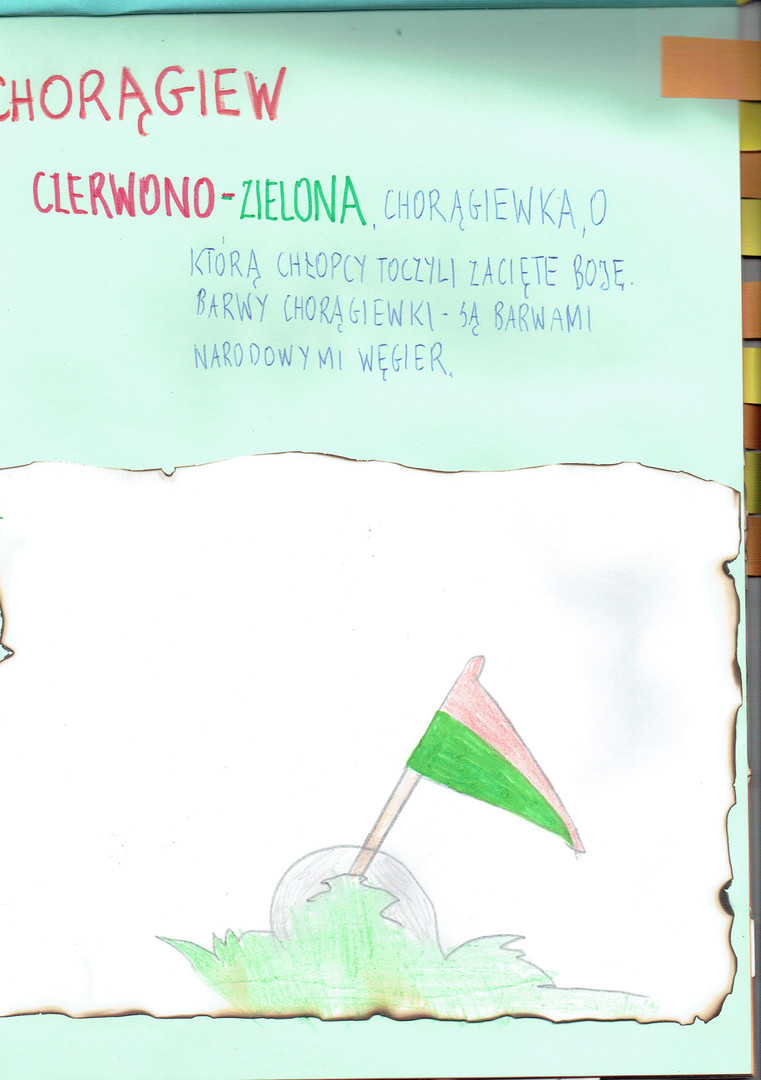 CHORĄGIEW
CZERWONO-ZIELONA, CHORĄGIEWKA, O
KTÓRĄ CHŁOPCY TOCZYLI ZACIĘTE BOJE.
BARWY CHORĄGIEWKI - SĄ BARWAMI
NARODOWYMI WĘGIER.